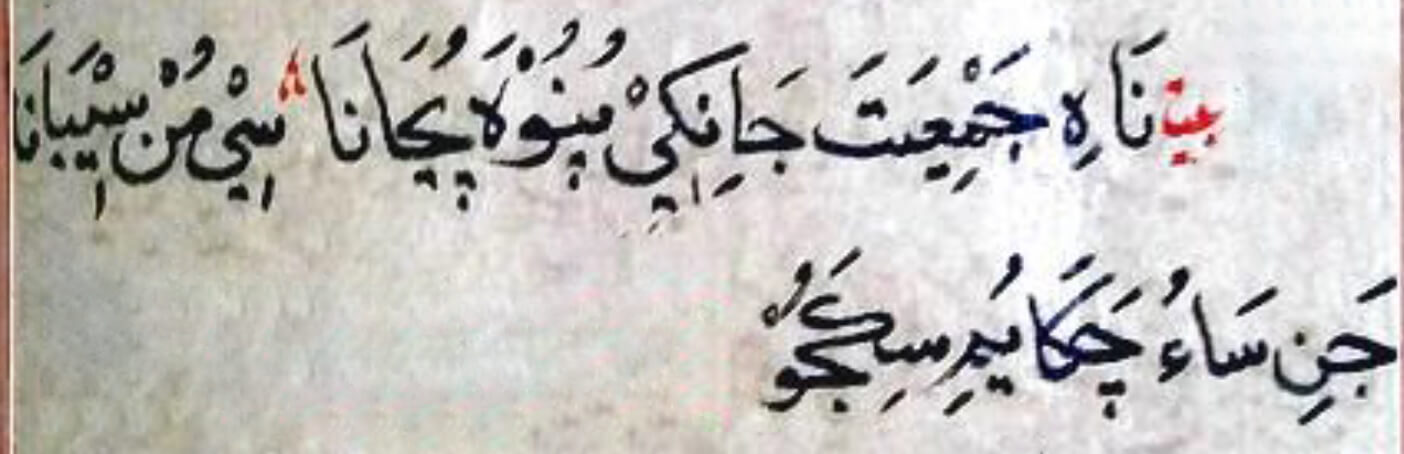 بيت نَاهِ جَمْعِيَتَ جَانِكِيْ مُنُوْهَ پُڄَانَا سٖيْ مُنْ سٖيْبَانَا
جَنِ سَاءُ چَکَايُمِ سِڪَجُوْ